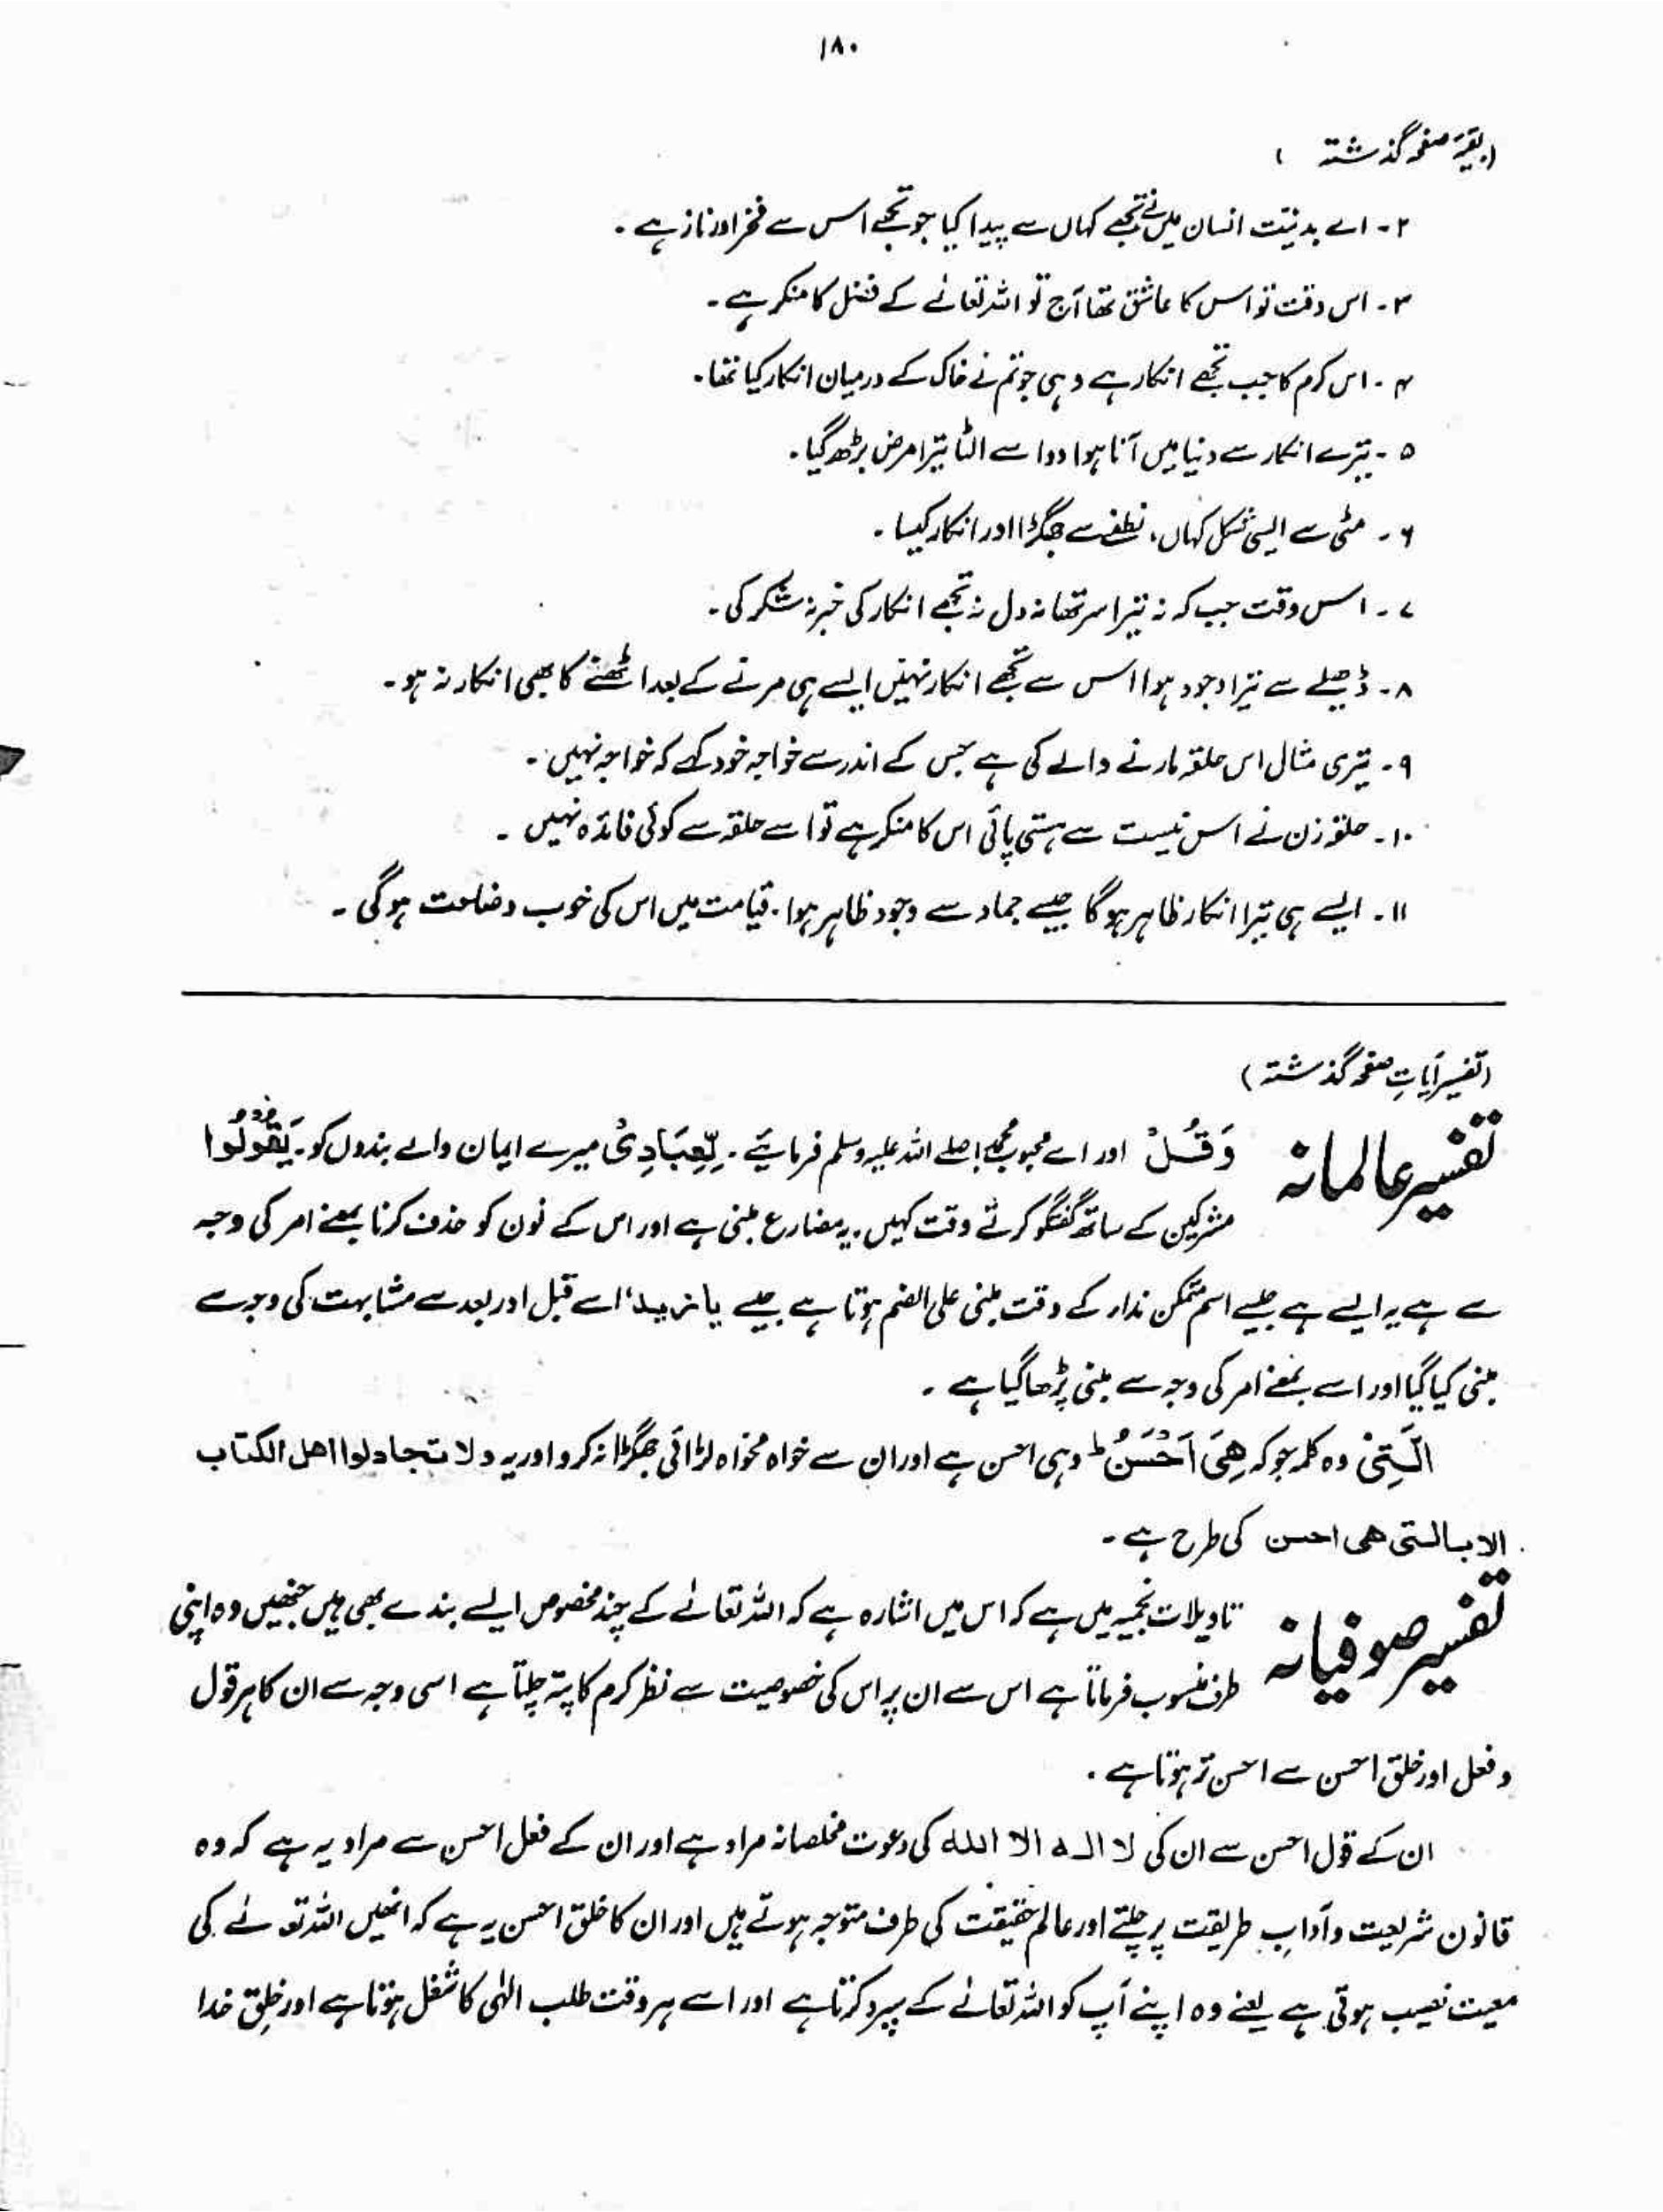 ۱۸۰
(بقیہ صفحہ گذشتہ)
۲۔ اے بدنیت انسان میں نے تجھے کہاں سے پیدا کیا جو تجھے اس سے فخر اور ناز ہے۔
۳۔ اس وقت تو اس کا عاشق تھا آج تو اللہ تعالےٰ کے فضل کا منکر ہے۔
۴۔ اس کرم کا جب تجھے انکار ہے وہی جو تم نے خاک کے درمیان انکار کیا تھا۔
۵۔ تیرے انکار سے دنیا میں آنا ہوا دوا سے الٹا تیرا مرض بڑھ گیا۔
۶۔ مٹی سے ایسی شکل کہاں، نطفے سے جھگڑا اور انکار کیسا۔
۷۔ اس وقت جب کہ نہ تیرا سر تھا نہ دل نہ تجھے انکار کی خبر نہ شکر کی۔
۸۔ ڈھیلے سے تیرا وجود ہوا اس سے تجھے انکار نہیں ایسے ہی مرنے کے بعد اٹھنے کا بھی انکار نہ ہو۔
۹۔ تیری مثال اس حلقہ مارنے والے کی ہے جس کے اندر سے خواجہ خود کہے کہ خواجہ نہیں۔
۱۰۔ حلقہ زن نے اس نیست سے ہستی پائی اس کا منکر ہے تو اسے حلقہ سے کوئی فائدہ نہیں۔
۱۱۔ ایسے ہی تیرا انکار ظاہر ہوگا جیسے جماد سے وجود ظاہر ہوا۔ قیامت میں اس کی خوب وضاحت ہوگی۔
(تفسیر آیاتِ صفحہ گذشتہ)
تفسیر عالمانہ وَقُلْ اور اے محبوب محمد صلے اللہ علیہ وسلم فرمایئے۔ لِّعِبَادِیْ میرے ایمان والے بندوں کو۔ یَقُوْلُوا
مشرکین کے ساتھ گفتگو کرتے وقت کہیں۔ یہ مضارع مبنی ہے اور اس کے نون کو حذف کرنا بمعنے امر کی وجہ
سے ہے یہ ایسے ہے جیسے اسم متمکن ندار کے وقت مبنی علی الضم ہوتا ہے جیسے یا زید، اسے قبل اور بعد سے مشابہت کی وجہ سے
مبنی کیا گیا اور اسے بمعنے امر کی وجہ سے مبنی پڑھا گیا ہے۔
الَّتِیْ وہ کلمہ جو کہ ھِیَ اَحْسَنُ ؕ وہی احسن ہے اور ان سے خواہ مخواہ لڑائی جھگڑا نہ کرو اور یہ ولا تجادلوا اھل الکتاب
الا بالتی ھی احسن کی طرح ہے۔
تفسیر صوفیانہ تاویلات نجمیہ میں ہے کہ اس میں اشارہ ہے کہ اللہ تعالےٰ کے چند مخصوص ایسے بندے بھی ہیں جنھیں وہ اپنی
طرف منسوب فرماتا ہے اس سے ان پر اس کی خصوصیت سے نظر کرم کا پتہ چلتا ہے اسی وجہ سے ان کا ہر قول
و فعل اور خلق احسن سے احسن تر ہوتا ہے۔
ان کے قول احسن سے ان کی لا الٰہ الا اللہ کی دعوت مخلصانہ مراد ہے اور ان کے فعل احسن سے مراد یہ ہے کہ وہ
قانون شریعت و آدابِ طریقت پر چلتے اور عالم حقیقت کی طرف متوجہ ہوتے ہیں اور ان کا خلق احسن یہ ہے کہ انھیں اللہ تعالےٰ کی
معیت نصیب ہوتی ہے یعنے وہ اپنے آپ کو اللہ تعالےٰ کے سپرد کرتا ہے اور اسے ہر وقت طلب الٰہی کا شغل ہوتا ہے اور خلقِ خدا